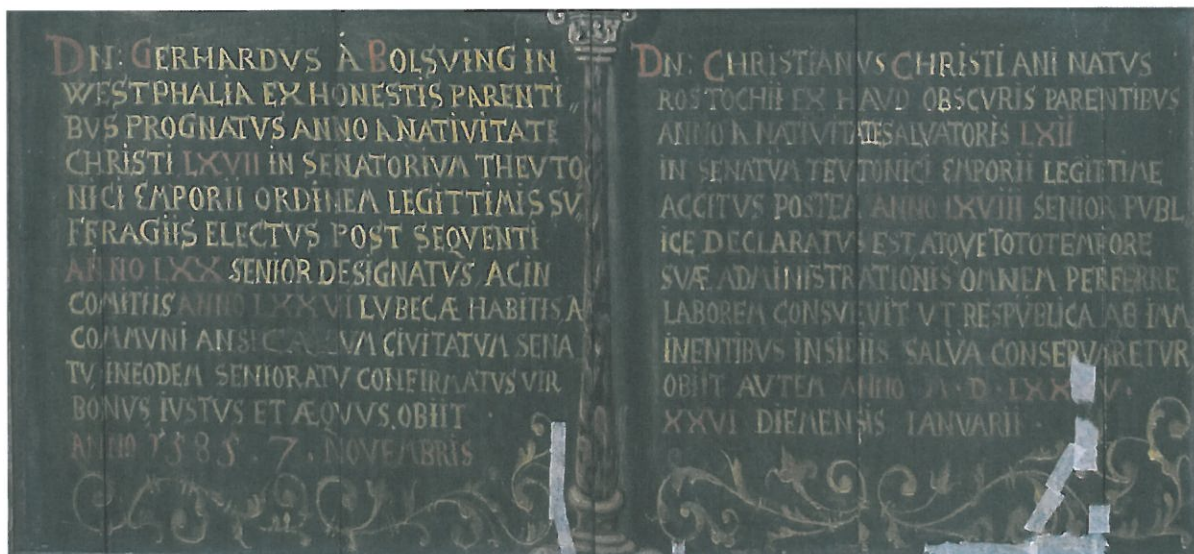 DN: GERHARDVS Á BOLSVING IN
WESTPHALIA EX HONESTIS PARENTI„
BVS PROGNATVS ANNO A NATIVITATE
CHRISTI LXVII IN SENATORIVM THEVTO
NICI EMPORII ORDINEM LEGITTIMIS SV„
FFRAGIIS ELECTVS POST SEQVENTI
ANNO LXX SENIOR DESIGNATVS AC IN
COMITIIS ANNO LXXVI LVBECÆ HABITIS, A
COMMVNI CIVITATVM SENA
TV, IN EODEM SENIORATV CONFIRMATVS VIR
BONVS IVSTVS ET ÆQVVS, OBIIT ·
ANNO 1585 · 7 · NOVEMBRIS
DN: CHRISTIANVS CHRISTIANI NATVS
ROSTOCHII EX HAVD OBSCVRIS PARENTIBVS
ANNO A NATIVITATE SALVATORIS LXII
IN SENATVM TEVTONICI EMPORII LEGITTIME
ACCITVS POSTEA ANNO LXVIII SENIOR PVBL
ICE DECLARATVS EST, ATQVE TOTO TEMPORE
SVÆ ADMINISTRATIONIS OMNEM PERFERRE
LABOREM CONSVEVIT VT RESPVBLICA AB IMM
INENTIBVS INSIDIIS SALVA CONSERVARETVR
OBIIT AVTEM ANNO M · D ·
XXVI DIE MENSIS IANVARII ·